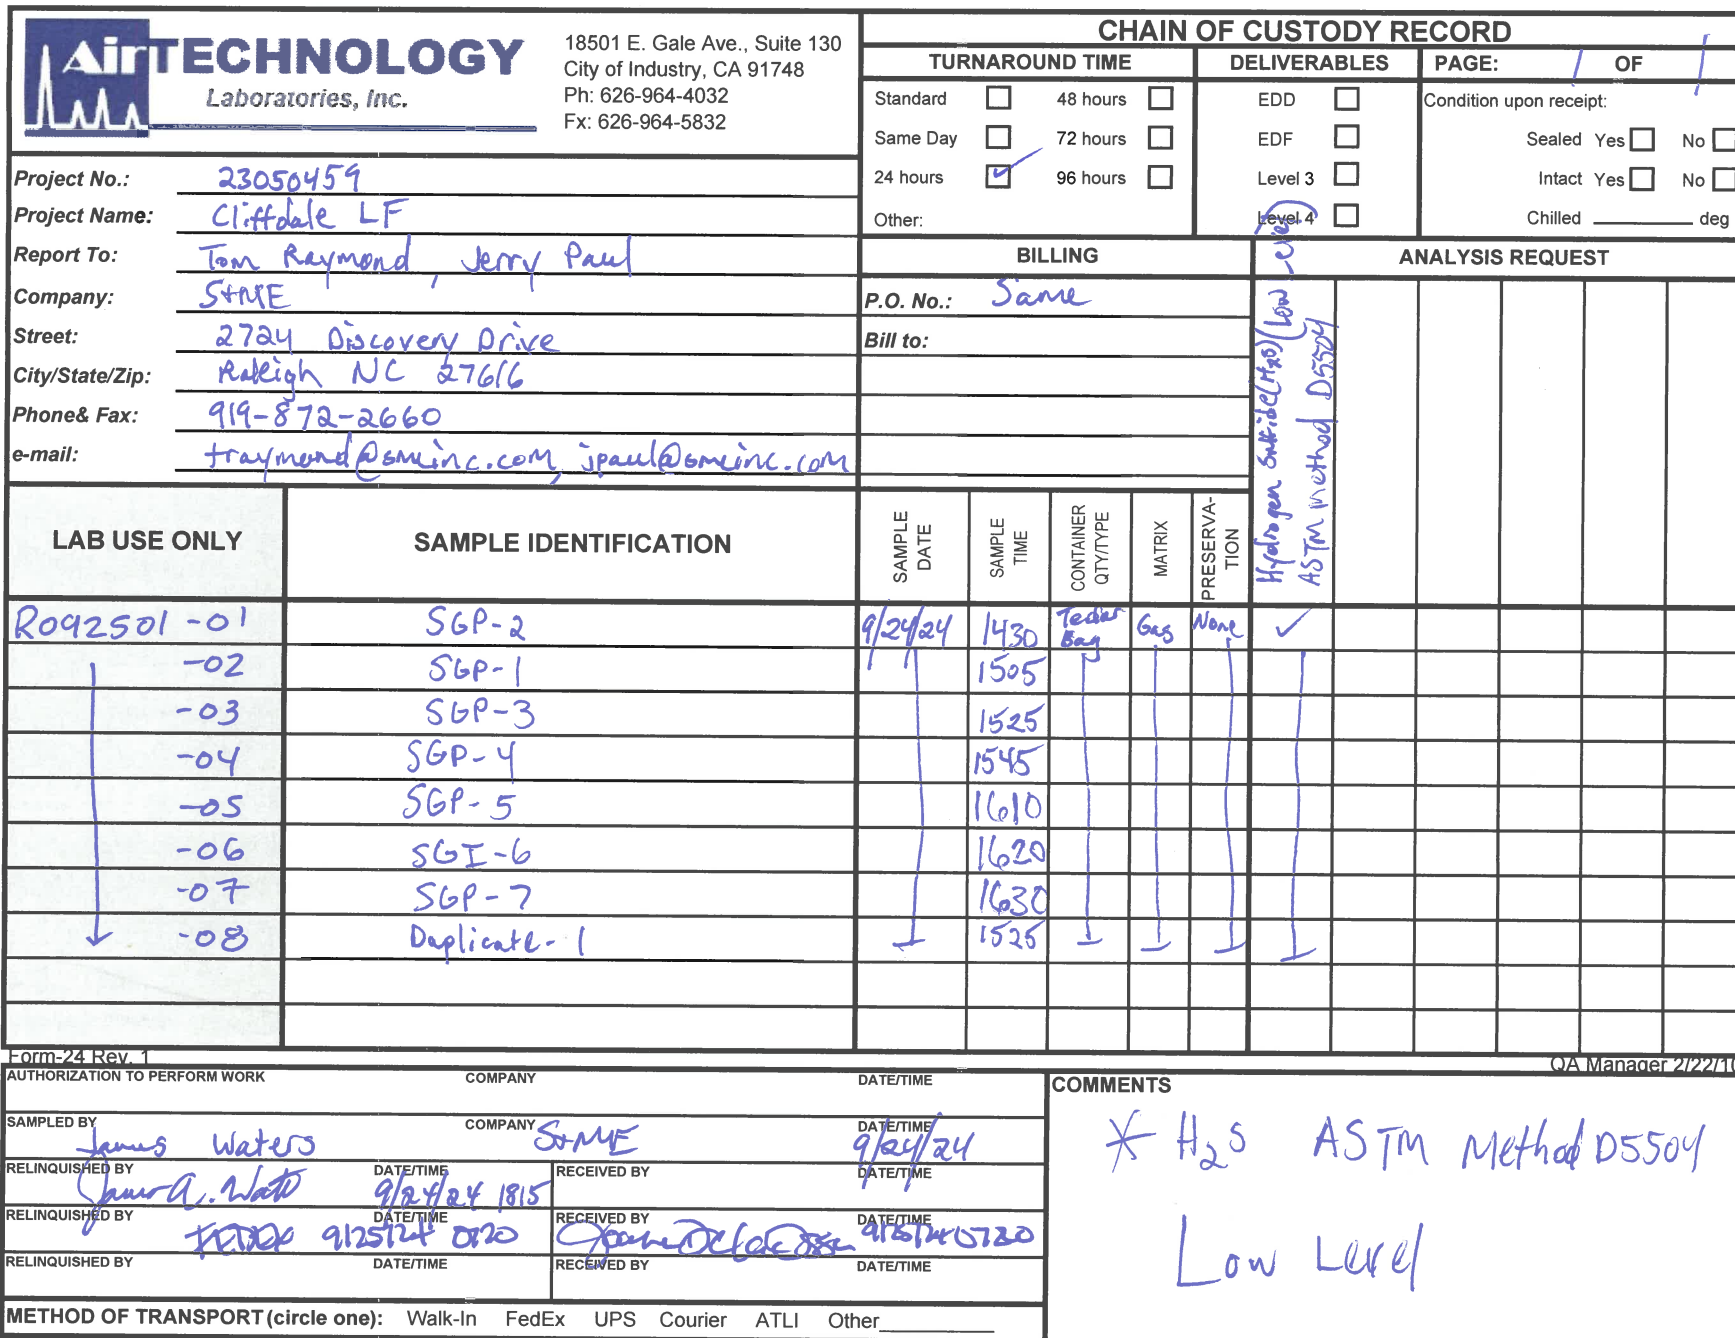 AirTECHNOLOGY
Laboratories, Inc.
18501 E. Gale Ave., Suite 130
City of Industry, CA 91748
Ph: 626-964-4032
Fx: 626-964-5832
CHAIN OF CUSTODY RECORD
TURNAROUND TIME
Standard 48 hours
Same Day 72 hours
24 hours ✓ 96 hours
Other:
DELIVERABLES
EDD
EDF
Level 3
Level 4
PAGE: 1 OF 1
Condition upon receipt:
Sealed Yes No
Intact Yes No
Chilled ________ deg
Project No.: 23050459
Project Name: Cliffdale LF
Report To: Tom Raymond, Jerry Paul
Company: S+ME
Street: 2724 Discovery Drive
City/State/Zip: Raleigh NC 27616
Phone& Fax: 919-872-2660
e-mail: traymond@smeinc.com, jpaul@smeinc.com
BILLING
P.O. No.: Same
Bill to:
ANALYSIS REQUEST
Hydrogen Sulfide (H2S) (Low Level)
ASTM Method D5504
LAB USE ONLY SAMPLE IDENTIFICATION SAMPLE DATE SAMPLE TIME CONTAINER QTY/TYPE MATRIX PRESERVA-TION
R092501 -01 SGP-2 9/24/24 1430 Tedlar Bag Gas None ✓
-02 SGP-1 1505
-03 SGP-3 1525
-04 SGP-4 1545
-05 SGP-5 1610
-06 SGI-6 1620
-07 SGP-7 1630
-08 Duplicate-1 1525
Form-24 Rev. 1
QA Manager 2/22/10
AUTHORIZATION TO PERFORM WORK COMPANY DATE/TIME
SAMPLED BY James Waters COMPANY S+ME DATE/TIME 9/24/24
RELINQUISHED BY James A. Wats DATE/TIME 9/24/24 1815 RECEIVED BY DATE/TIME
RELINQUISHED BY FEDEX DATE/TIME 9/25/24 0720 RECEIVED BY DATE/TIME 9/25/24 0720
RELINQUISHED BY DATE/TIME RECEIVED BY DATE/TIME
METHOD OF TRANSPORT (circle one): Walk-In FedEx UPS Courier ATLI Other________
COMMENTS
* H2S ASTM Method D5504
Low Level